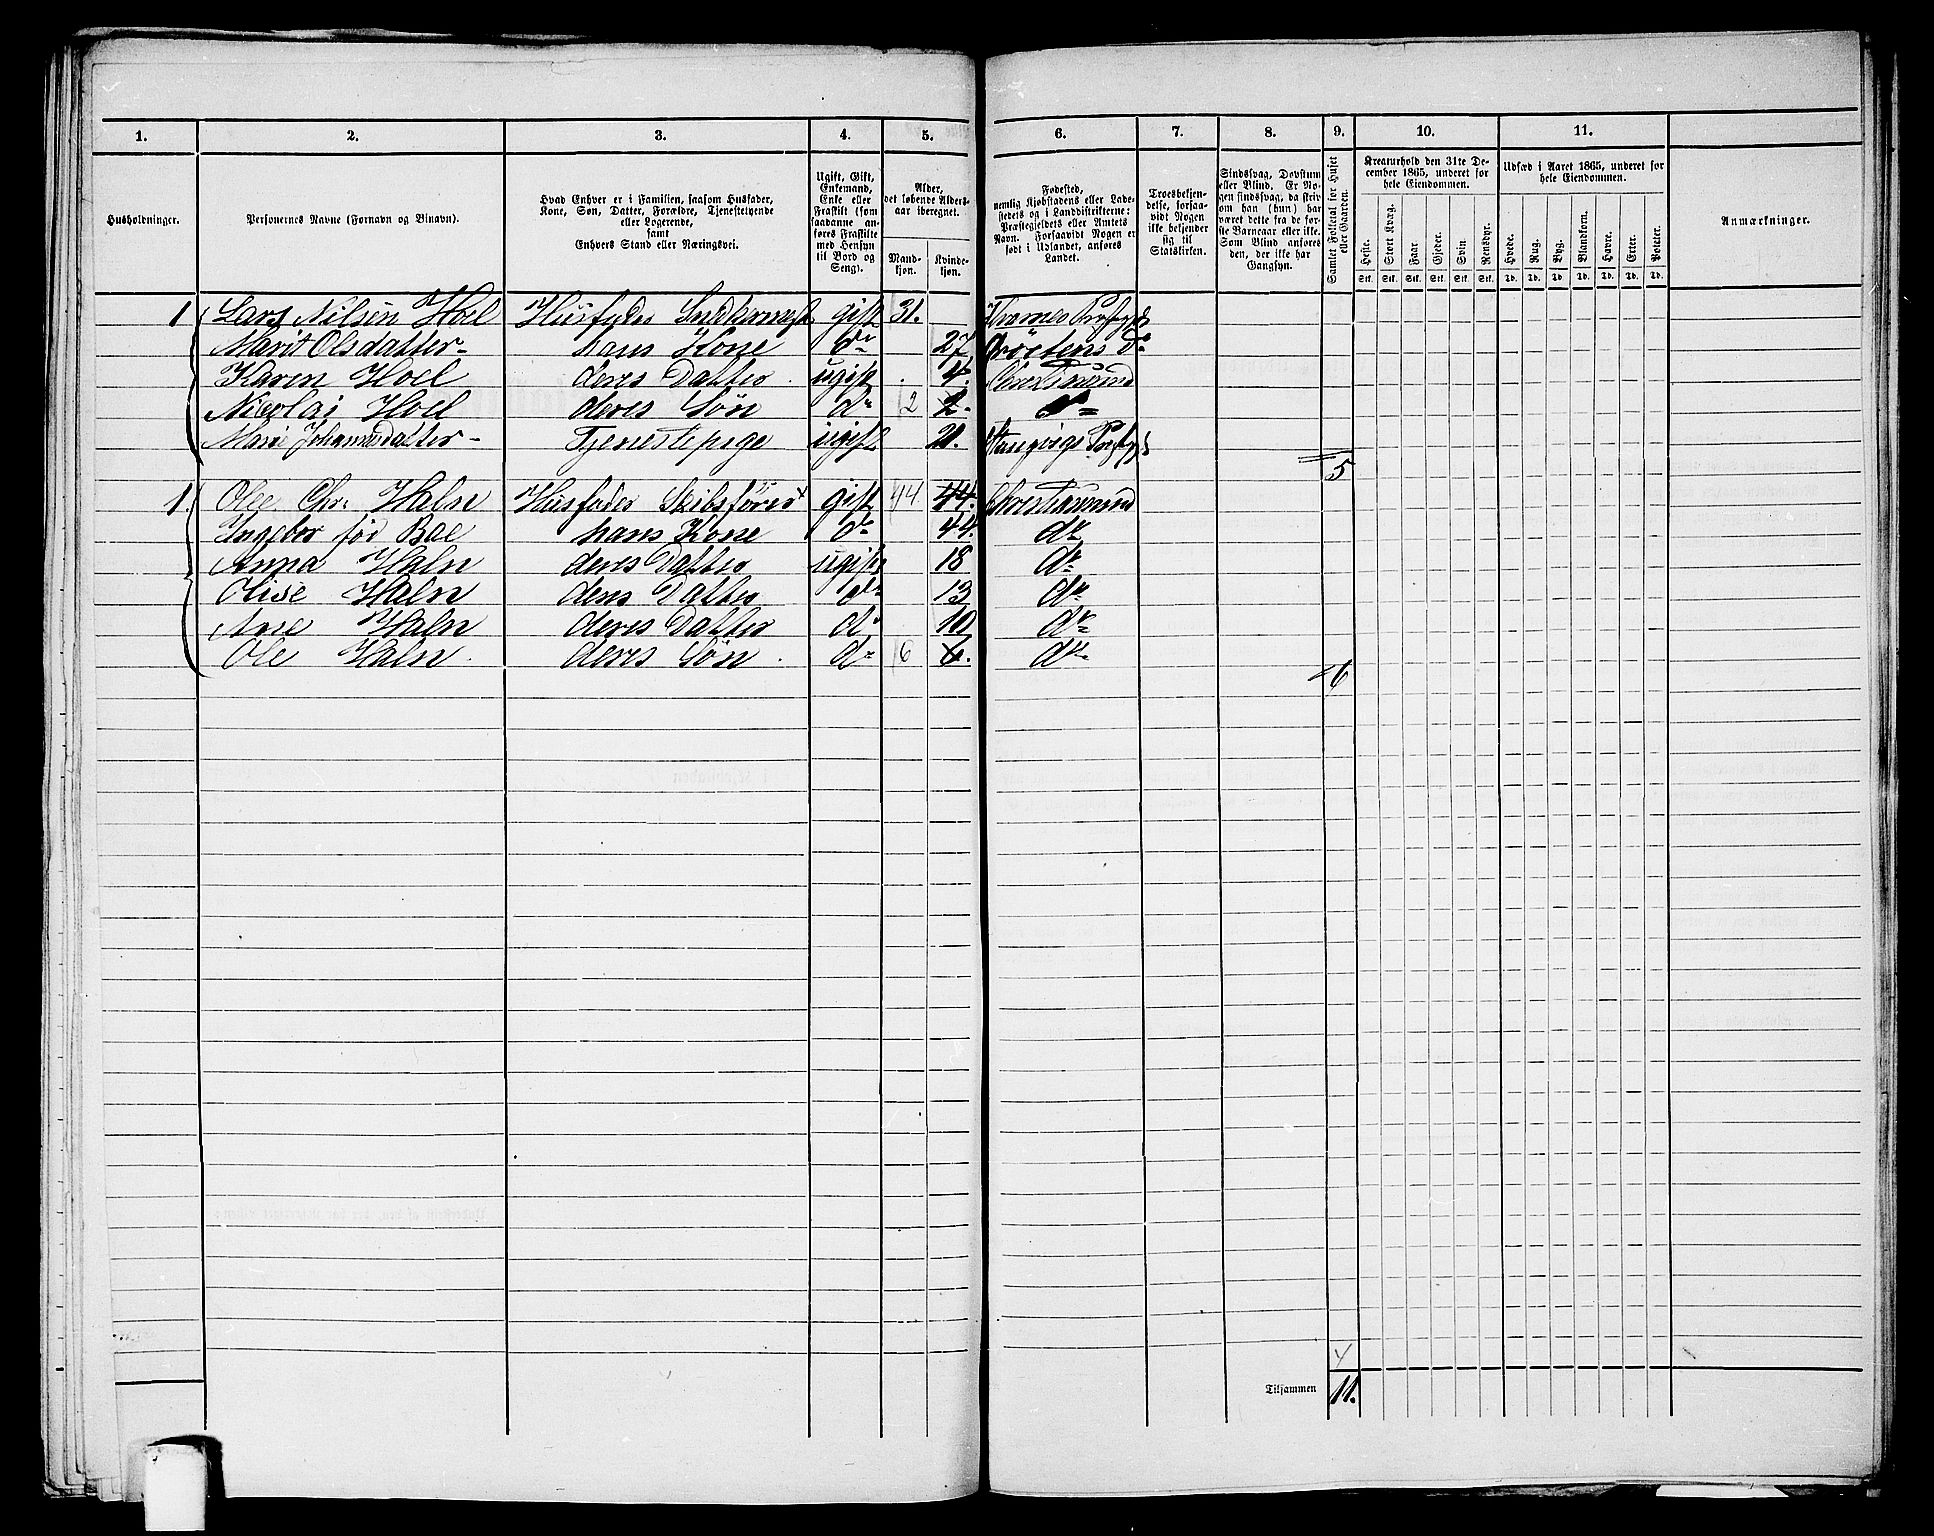 1. 2. 3. 4. 5. 6. 7. 8. 9. 10. 11.
Husholdninger.
Personernes Navne (Fornavn og Binavn).
Hvad Enhver er i Familien, saasom Husfader,
Kone, Søn, Datter, Forældre, Tjenestetyende
eller Logerende,
samt
Enhvers Stand eller Næringsvei.
Ugift, Gift,
Enkemand,
Enke eller
Fraskilt (som
saadanne an-
føres Fraskilte
med Hensyn
til Bord og
Seng).
Alder,
det løbende Alders-
aar iberegnet.
Mand-
kjøn.
Kvinde-
kjøn.
Fødested,
nemlig Kjøbstadens eller Lade-
stedets og i Landdistrikterne:
Præstegjeldets eller Amtets
Navn. Forsaavidt Nogen er
født i Udlandet, anføres
Landet.
Troesbekjen-
delse, forsaa-
vidt Nogen
ikke bekjender
sig til
Statskirken.
Sindssvag, Døvstum
eller Blind. Er No-
gen sindssvag, da skriv
om han (hun) har
været dette fra de før-
ste Barneaar eller ikke.
Som Blind anføres
den, der ikke har
Gangsyn.
Samlet Folketal for Huset
eller Gaarden.
Kreaturhold den 31te De-
cember 1865, underet for
hele Eiendommen.
Heste. Stort Kvæg. Faar. Gjeder. Svin. Rensdyr.
Stk. Stk. Stk. Stk. Stk. Stk.
Udsæd i Aaret 1865, underet for
hele Eiendommen.
Hvede. Rug. Byg. Blandkorn. Havre. Erter. Poteter.
Td. Td. Td. Td. Td. Td. Td.
Anmærkninger.
1 Lars Nilsen Hoel Husfader gift 31.
Marit Olsdatter hans Kone do 27
Karen Hoel deres Datter ugift 4.
Nicolai Hoel deres Søn do 2 2. do
Marie Johannesdatter Tjenestepige ugift 21. Stangvigs
5
1. Ole Chr. Haln Husfader Skibsfører gift 44 44. Christiansund
Ingebor før Bae hans Kone do 44. do
Anna Haln deres Datter ugift 18 do
Olise Haln deres Datter do 13 do
Ane Haln deres Datter do 10 do
Ole Haln deres Søn do 6 6. do
6
Tilsammen 11.